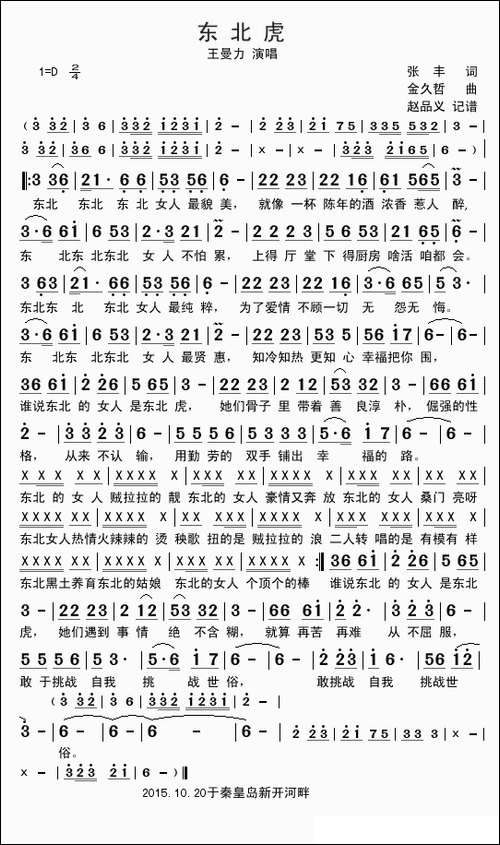 东北虎
王曼力 演唱
1=D 2/4
张 丰 词
金久哲 曲
赵品义 记谱
(3 32 | 3 6 | 332 1231 | 2 - | 23 23 | 21 75 | 335 532 | 3 - |
3 32 | 332 36 | 332 1231 | 2 - | x - | x - | 323 2165 | 6 - ) |
‖:3 36 | 21· 6 6 | 53 56 | 6 - | 22 23 | 22 16 | 61 565 | 3 - |
东北 东北 东 北 女人 最貌 美， 就像 一杯 陈年的 酒 浓香 惹人 醉，
3·6 61 | 6 53 | 2·3 21 | 2 - | 2 23 | 5 53 | 21 65 | 6 - |
东 北东 北东北 女 人 不怕 累， 上得 厅 堂 下 得厨房 啥活 咱都 会。
3 63 | 21· 66 | 53 56 | 6 - | 22 23 | 22 16 | 3·6 65 | 6 - |
东北东 北 东北 女人 最纯 粹， 为了爱情 不顾一切 无 怨无 悔。
3·6 61 | 6 53 | 2·3 21 | 2 - | 22 23 | 53 5 | 56 17 | 6 - | 6 - |
东 北东 北东北 女 人 最贤 惠， 知冷知热 更知 心 幸福把你 围，
36 61 | 2 26 | 5 65 | 3 - | 22 23 | 2 12 | 53 32 | 3 - | 66 61 |
谁说东北 的 女人 是东北 虎， 她们骨子 里 带着 善 良淳 朴， 倔强的性
2 - | 33 23 | 6 - | 55 56 | 5 53 | 5·6 17 | 6 - | 6 - |
格， 从来 不认 输， 用勤 劳的 双手 铺出 幸 福的 路。
东北 的 女 人 贼拉拉的 靓 东北的 女人 豪情又奔 放 东北的 女人 桑门 亮呀
东北女人热情火辣辣的 烫 秧歌 扭的是 贼拉拉的 浪 二人转 唱的是 有模有 样
东北黑土养育东北的姑娘 东北的女人 个顶个的棒 谁说东北 的 女人 是东北
3 - | 22 23 | 2 12 | 53 32 | 3 - | 66 61 | 2 2· | 3 23 | 6 - |
虎， 她们遇到 事 情 绝 不含 糊， 就算 再苦 再难 从 不屈 服，
5 5 56 | 5 3· | 5·6 | 17 | 6 - | 6 - | 2 223 | 21· | 56 12 |
敢 于挑战 自我 挑 战世 俗， 敢挑战 自我 挑战世
(3 32 | 3 6 | 332 1231 | 2 - |
3 - | 6 - | 6 - | 6 - | 2 23 | 21 75 | 335 332 | 3 - | x - |
俗。
x - | 323 21 | 6 - )‖
2015.10.20于秦皇岛新开河畔